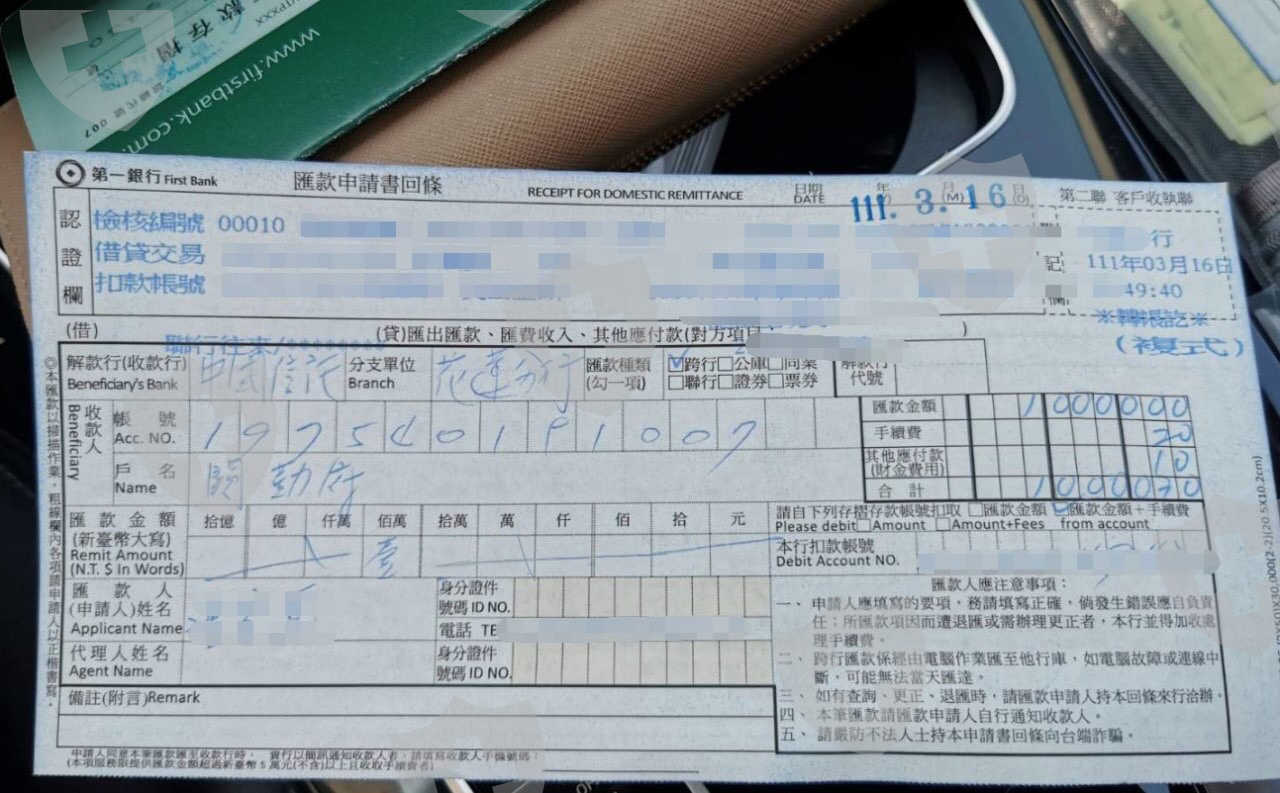 款存摺
007
www.firstbank.com
第一銀行 First Bank
匯款申請書回條
RECEIPT FOR DOMESTIC REMITTANCE
日期 年 月(M) 日(D)
DATE
111. 3. 16
第二聯 客戶收執聯
認證欄
檢核編號 00010
行
借貸交易
記
111年03月16日
扣款帳號
49:40
※轉帳訖※
(借)
(貸)匯出匯款、匯費收入、其他應付款(對方項目
)
聯行往來/********
(複式)
解款行(收款行)
Beneficiary's Bank
中國信託
分支單位
Branch
花蓮分行
匯款種類
(勾一項)
☑跨行□公庫□同業
□聯行□證券□票券
解款行
代號
收款人
Beneficiary
帳 號
Acc. NO.
戶 名
Name
匯款金額 1000000
手續費 20
其他應付款
(財金費用) 10
合 計 1000030
匯款金額
(新臺幣大寫)
Remit Amount
(N.T. $ In Words)
拾億 億 仟萬 佰萬 拾萬 萬 仟 佰 拾 元
壹
請自下列存摺存款帳號扣取 □匯款金額 ☑匯款金額+手續費
Please debit □Amount □Amount+Fees from account
本行扣款帳號
Debit Account NO.
匯款人
(申請人)姓名
Applicant Name
身分證件
號碼 ID NO.
電話 TE
代理人姓名
Agent Name
身分證件
號碼 ID NO.
備註(附言)Remark
匯款人應注意事項：
一、申請人應填寫的要項，務請填寫正確，倘發生錯誤應自負責
任；所匯款項因而遭退匯或需辦理更正者，本行並得加收處
理手續費。
二、跨行匯款係經由電腦作業匯至他行庫，如電腦故障或連線中
斷，可能無法當天匯達。
三、如有查詢、更正、退匯時，請匯款申請人持本回條來行洽辦。
四、本筆匯款請匯款申請人自行通知收款人。
五、請嚴防不法人士持本申請書回條向台端詐騙。
申請人同意本筆匯款匯至收款行時，貴行以簡訊通知收款人者，請填寫收款人手機號碼：
(本項服務限提供匯款金額超過新臺幣5萬元(不含)以上且收取手續費者)
◎本匯款以掃描作業，粗線欄內各項請申請人以正楷書寫。